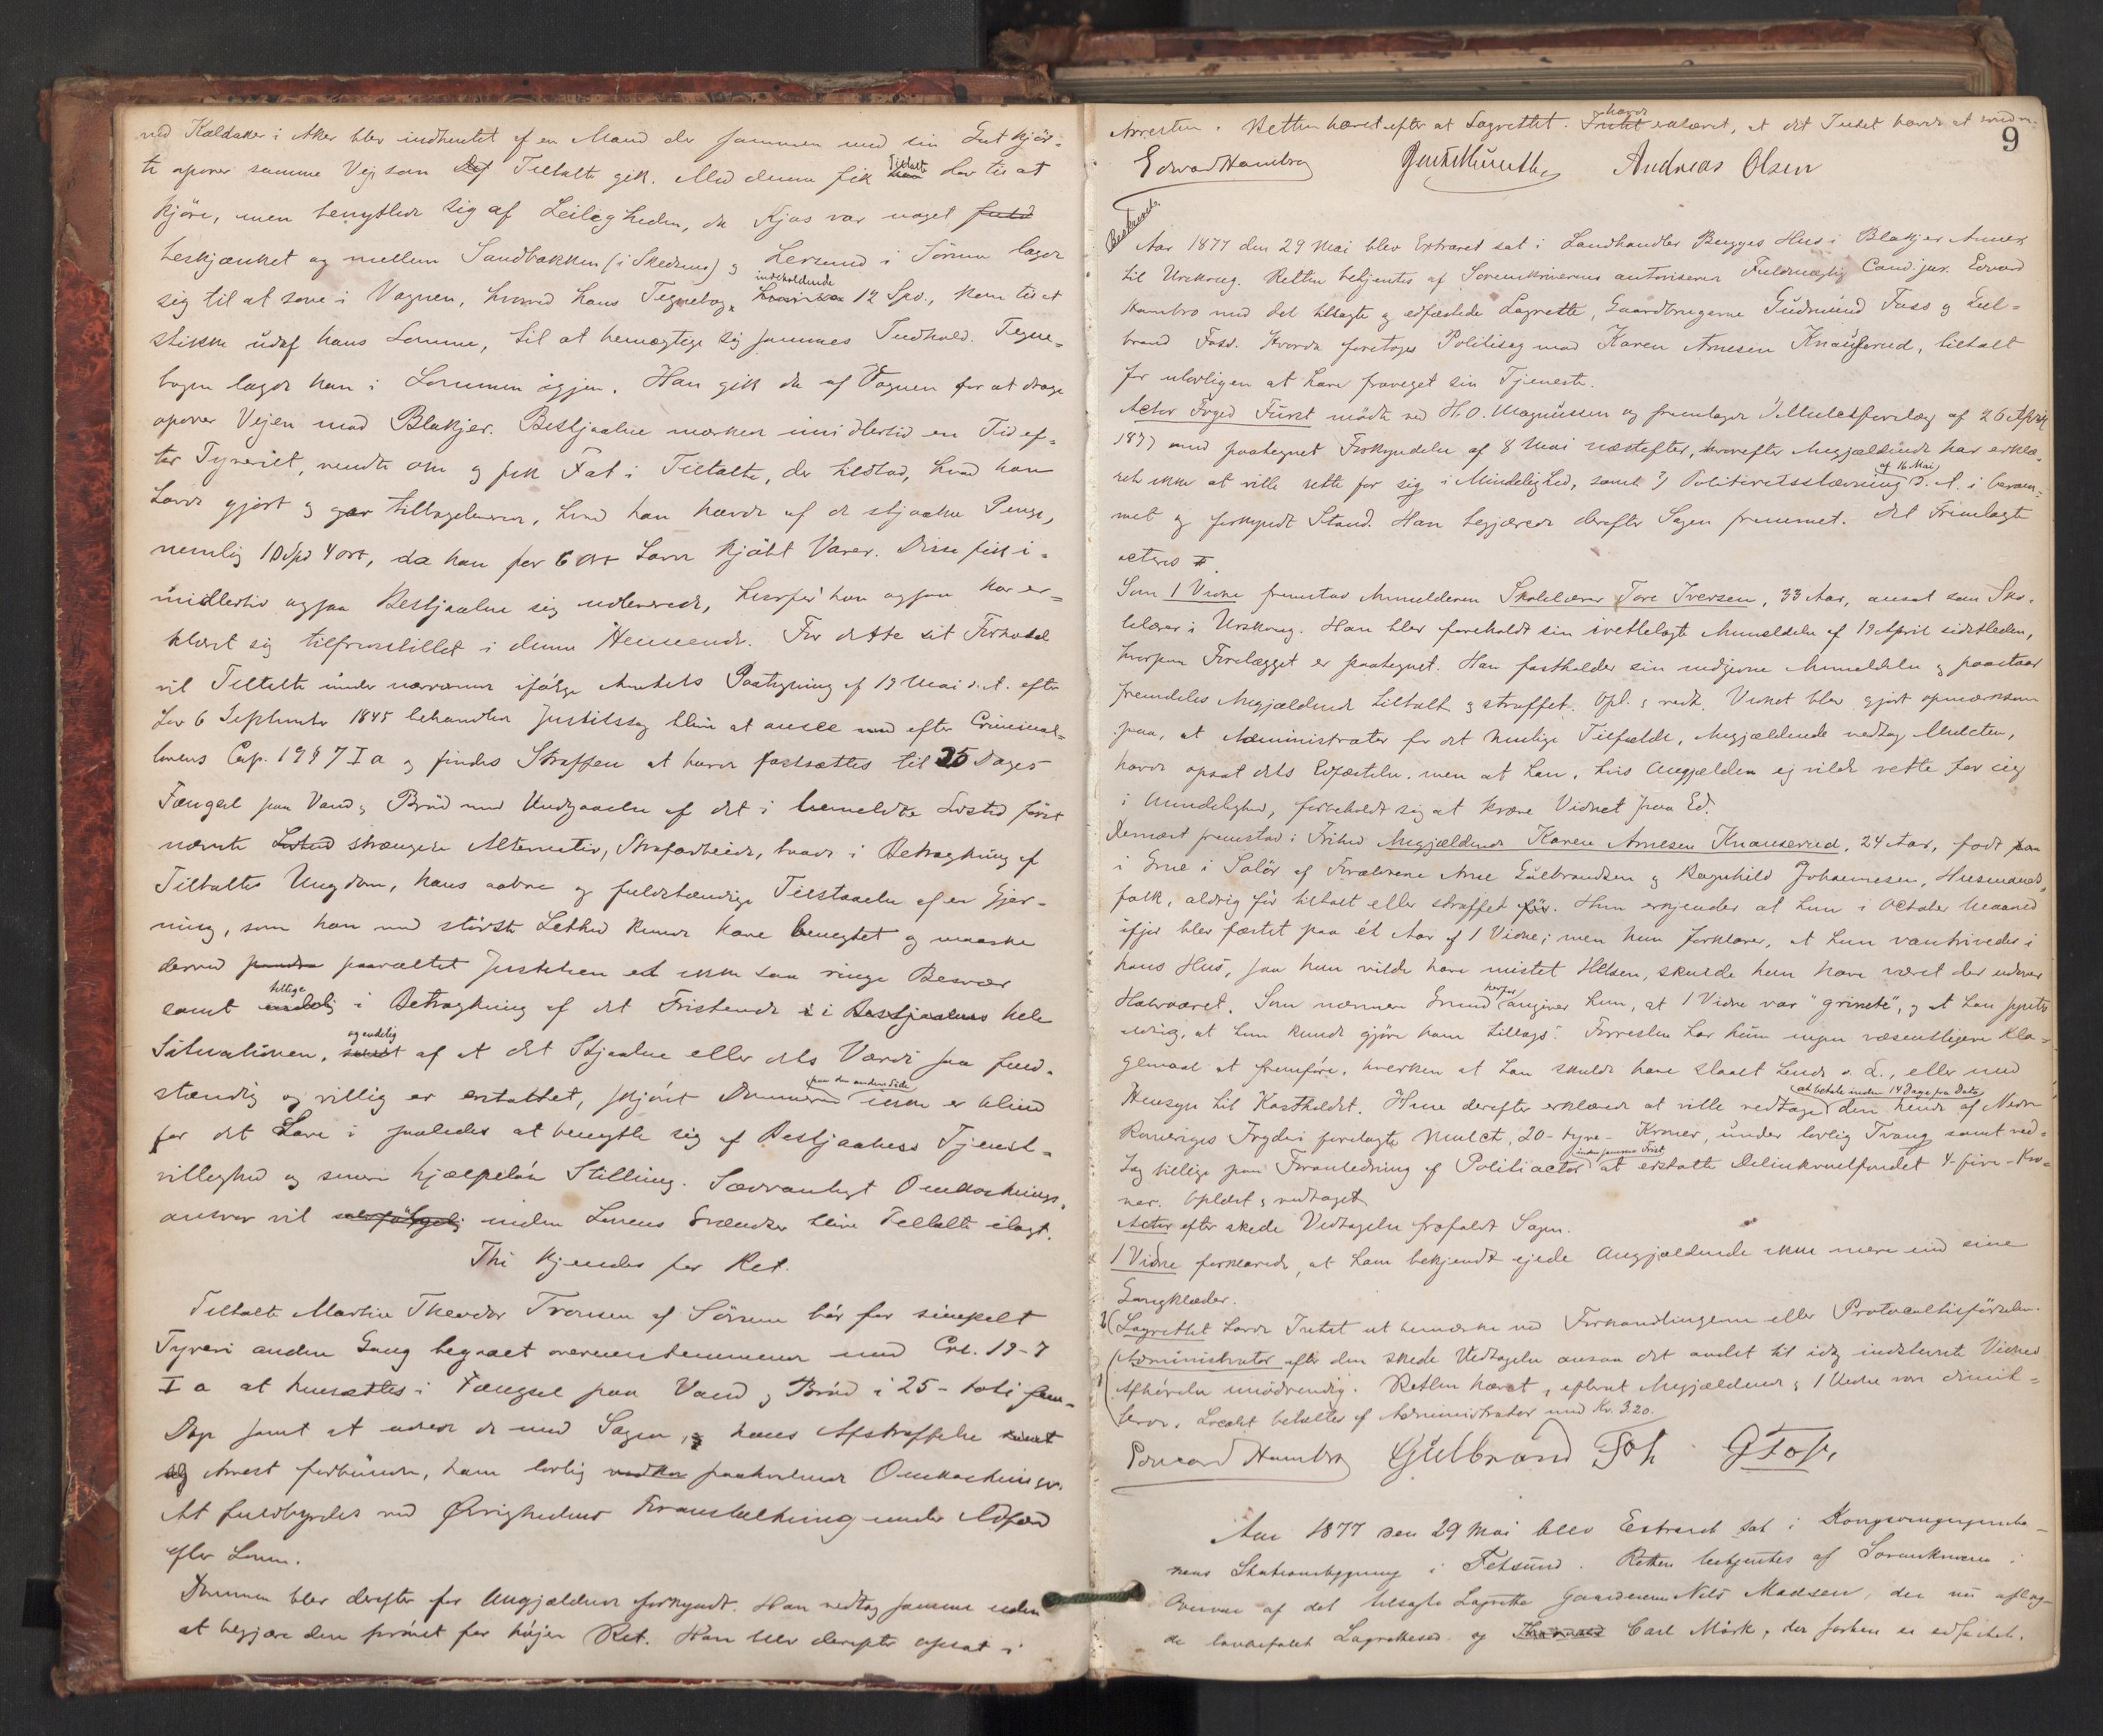 ved Kaldaker i Aker blev indhentet af en Mand der sammen med sin Gut kjør-
te opover samme Vej som Tiltalte gik. Med denne fik Tiltalte Lov til at
kjøre, men benyttede sig af Leiligheden, da Kjøs var noget fuld
beskjænket og mellem Sandbakken (i Skedsmo) og Lersund i Sørum lagde
sig til at sove i Vognen, hvorved hans Tegnebog, indeholdende 12 Spd., kom til at
stikke udaf hans Lomme, til at bemægtige sig sammes Indhold. Tegne-
bogen lagde han i Lommen igjen. Han gik da af Vognen for at drage
opover Vejen mod Blakjer. Bestjaalne mærkede imidlertid en Tid ef-
ter Tyveriet, vendte om og fik Fat i Tiltalte, der tilstod, hvad han
havde gjort og gav tilbageleverede, hvad han havde af de stjaalne Penge,
nemlig 10 Spd 4 ort, da han for 6 ort havde kjøbt Varer. Disse fik i-
midlertid ogsaa Bestjaalne sig udleverede, hvorfor han ogsaa har er-
klæret sig tilfredsstillet i denne Henseende. For dette sit Forhold
vil Tiltalte under nærværende ifølge Amtets Paategning af 19 Mai d. A. efter
Lov 6 September 1845 behandlede Justitssag blive at ansee efter Criminal-
lovens Cap. 19 § 7 I a og findes Straffen at burde fastsættes til 25 Dages
Fængsel paa Vand & Brød med Undgaaelse af det i bemeldte Lovsted først
nævnte Lovsted strængere Alternativ, Strafarbeide, baade i Betragtning af
Tiltaltes Ungdom, hans aabne og fuldstændige Tilstaaelse af en Gjer-
ning, som han med største Lethed kunde have benegtet og maaske
derved paavæltet Justitien et ikke saa ringe Besvær
samt tillige i Betragtning af det Fristende i Bestjaalnes hele
Situationen, og endelig af at det Stjaalne eller dets Værdi saa fuld-
stændig og villig er erstattet, skjønt Dommeren paa den anden Side ikke er blind
for det Lave i saaledes at benytte sig af Bestjaalnes Tjenst-
villighed og senere hjælpeløse Stilling. Sædvanligt Omkostnings-
ansvar vil selvfølgelig inden Lovens Grændser blive Tiltalte ilagt.
Thi kjendes for Ret.
Tiltalte Martin Theodor Tronsen af Sørum bør for simpelt
Tyveri anden Gang begaaet overensstemmende med Crl. 19-7
I a at hensættes i Fængsel paa Vand & Brød i 25 - toti fem-
Dage samt at udrede de med Sagen, hans Afstraffelse samt
og Arrest forbundne, ham lovlig paakommende Omkostninger.
At fuldbyrdes ved Øvrighedens Foranstaltning under Adfærd
efter Loven.
Dommen blev derefter for Angjældende forkyndt. Han vedtog samme uden
at begjære den prøvet for højere Ret. Han blev derefter afsat i
9
Arresten. Retten hævet efter at Lagrettet havde erklæret, at det Intet havde at
Edvard Hambro Andreas Olsen
Beskrevet.
Aar 1877 den 29 Mai blev Extraret sat i Landhandler Bugges Hus i Blakjer Annex
til Urskoug. Retten betjentes af Sorenskriverens autoriserede Fuldmægtig Cand. jur. Edvard
Hambro med det tilsagte og edfæstede Lagrette, Gaardbrugerne Gudmund Foss og Gul-
brand Foss. Hvorda foretoges Politisag mod Karen Arnesen Knauserud, tiltalt
for ulovligen at have fraveget sin Tjeneste.
Actor Foged Fürst mødte ved H. O. Magnussen og fremlagde 1) Mulctforelæg af 26 April
1877 med paategnet Forkyndelse af 8 Mai næstefter, hvorefter Angjældende har erklæ-
ret ikke at ville rette for sig i Mindelighed, samt 2) Politiretsstævning af 16 Mai d. A. i beram-
met og forkyndt Stand. Han begjærede derefter Sagen fremmet. Det Fremlagte
acteres
Som 1 Vidne fremstod Anmelderen Skolelærer Tore Iversen, 33 Aar, ansat som Sko-
lelærer i Urskoug. Han blev foreholdt sin ivettelagte Anmeldelse af 19 April sidstleden,
hvorpaa Forelægget er paategnet. Han fastholder sin indgivne Anmeldelse og paastaar
fremdeles Angjældende tiltalt og straffet. Opl. & vedt. Vidnet blev gjort opmærksom
paa, at Administrator for det mulige Tilfælde, Angjældende vedtog Mulcten,
havde opsat dets Edfæstelse, men at han, hvis Angjældende ej vilde rette for sig
i Mindelighed, forbeholdt sig at kræve Vidnet paa Ed.
Dernæst fremstod i Frihed Angjældende Karen Arnesen Knauserud, 24 Aar, født paa
i Grue i Solør af Forældrene Arne Gulbrandsen og Ragnhild Johannesen, Husmands-
folk, aldrig før tiltalt eller straffet før. Hun erkjender at hun i October Maaned
ifjor blev fæstet paa ét Aar af 1 Vidne; men hun forklarer, at hun vantrivedes i
hans Hus, saa hun vilde have mistet Helsen, skulde hun have været der udover
Halvaaret. Som nærmere Grund herfor angiver hun, at 1 Vidne var "grinete", og at han syntes
aldrig, at hun kunde gjøre ham tillags. Forresten har hun ingen væsentligere Kla-
gemaal at fremføre, hverken at han skulde have slaaet hende o. L., eller med
Hensyn til Kostholdet. Hun derefter erklærede at ville vedtage at betale inden 14 Dage fra Dato den hende af Nedre
Romeriges Fogderi forelagte Mulct, 20 - tyve - Kroner, under lovlig Tvang samt ved-
tog tillige paa Foranledning af Politiactor inden samme Frist at erstatte Delinkventfondet 4 - fire - Kro-
ner. Oplæst & vedtaget
Actor efter skede Vedtagelse frafaldt Sagen.
1 Vidne forklarede, at ham bekjendt ejede Angjældende ikke mere end sine
Gangklæder.
2( Lagrettet havde Intet at bemærke ved Forhandlingerne eller Protocoltilførselen.
1( Administrator efter den skede Vedtagelse ansaa det andet til idag indstevnte Vidnes
Afhørelse unødvendig. Retten hævet, efterat Angjældende & 1 Vidne vare dimit-
terede. Localet betaltes af Administrator med Kr. 3.20.
Edvard Hambro Gulbrand Foss G Foss
Aar 1877 den 29 Mai blev Extraret sat i Kongsvingerba-
nens Stationsbygning i Fetsund. Retten betjentes af Sorenskriveren i
Overvær af det tilsagte Lagrette Gaardmand Nils Madsen, der nu aflag-
de lovbefalet Lagrettesed og Carl Mørk, der forhen er edfæstet.